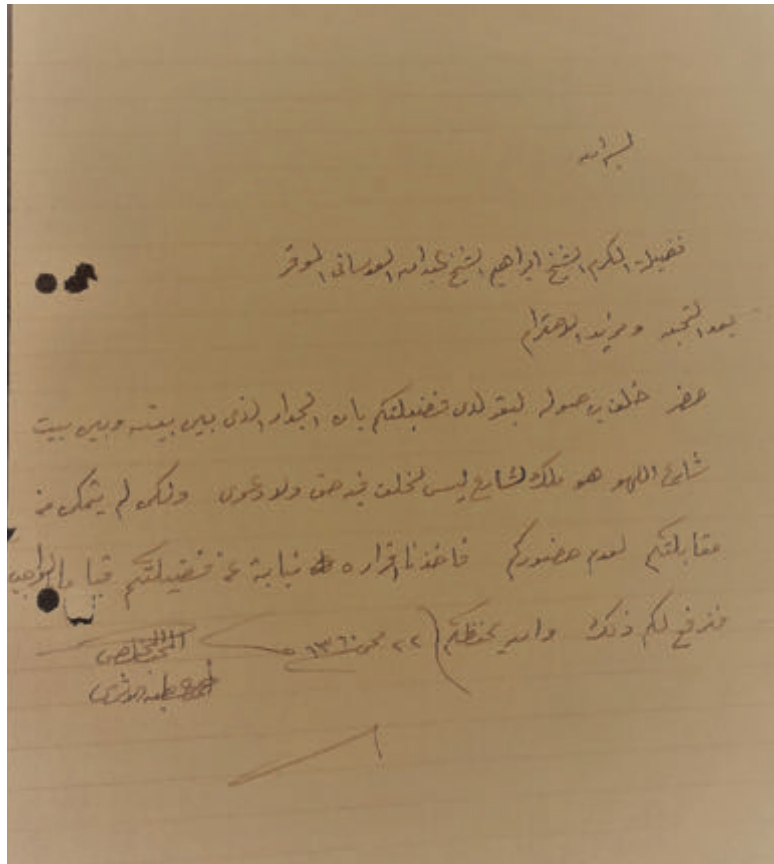 بسم الله
فضيلة المكرم الشيخ ابراهيم الشيخ عبدالله العدساني الموقر
بعد التحية ومزيد الاحترام
حضر خلف بن صوله ليقر لدى فضيلتكم بان الجدار الذي بين بيته وبين بيت
شايع اللهو هو ملك لشايع ليس لخلف فيه حق ولا دعوى ولكن لم يتمكن من
مقابلتكم لعدم حضوركم فاخذنا اقراره نيابة عن فضيلتكم قياما بالواجب
فنرفع لكم ذلك والله يحفظكم ٢٢ محرم ١٣٦٠
المخلص